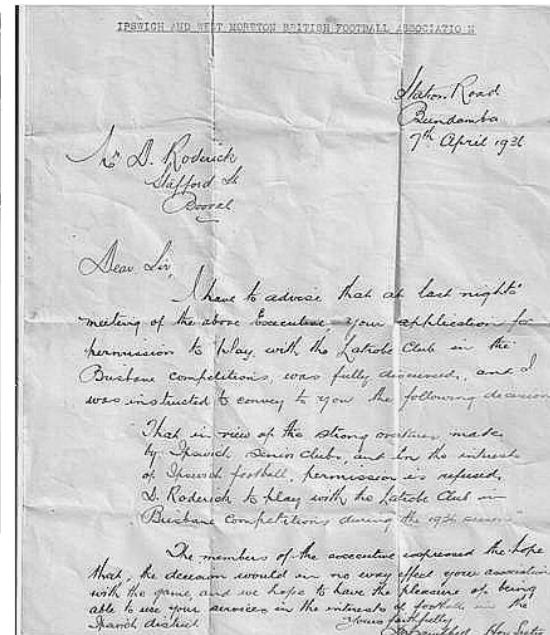 IPSWICH AND WEST MORETON BRITISH FOOTBALL ASSOCIATION
Station Road
Bundamba
7th April 1936
Mr D. Roderick
Stafford St
Booval
Dear Sir,
I have to advise that at last night's
meeting of the above Executive, your application for
permission to play with the Latrobe Club in the
Brisbane competitions, was fully discussed, and I
was instructed to convey to you the following decision
That in view of the strong overtures made
by Ipswich Senior clubs, and in the interests
of Ipswich football, permission is refused
D. Roderick to play with the Latrobe Club in
Brisbane Competitions during the 1936 season"
The members of the executive expressed the hope
that, the decision would in no way effect your association
with the game, and we hope to have the pleasure of being
able to use your services in the interests of football in the
Ipswich district.
Yours faithfully
Hon Secty